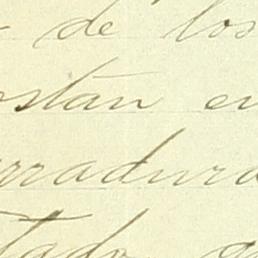 de los
ostan en
rradura
tado